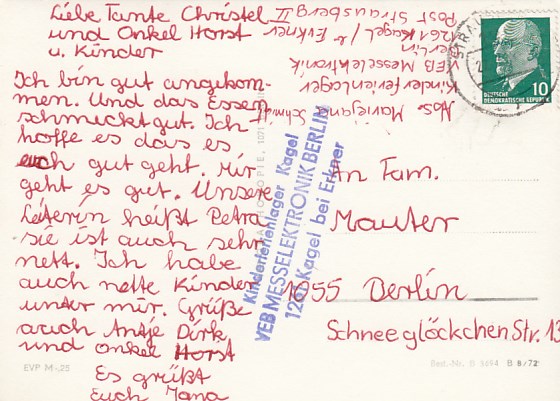 Liebe Tante Christel
und Onkel Horst
u. Kinder
Ich bin gut angekom-
men. Und das Essen
schmeckt gut. Ich
hoffe es das es
euch gut geht. Mir
geht es gut. Unsere
Leiterin heißt Petra
sie ist auch sehr
nett. Ich habe
auch nette Kinder
unter mir. Grüße
auch Antje Dirk
und Onkel Horst
Es grüßt
Euch Jana
EVP M -,25
Abs. Schmidt
Kinderferienlager
VEB Messelektronik
Berlin
1261 Kagel / b. Erkner
Post Strausberg II
Kinderferienlager Kagel
VEB MESSELEKTRONIK BERLIN
1261 Kagel bei Erkner
10
DEUTSCHE
DEMOKRATISCHE REPUBLIK
An Fam.
Mauter
1055 Berlin
Schneeglöckchen Str. 13
Best.-Nr. B 3694 B 8/72